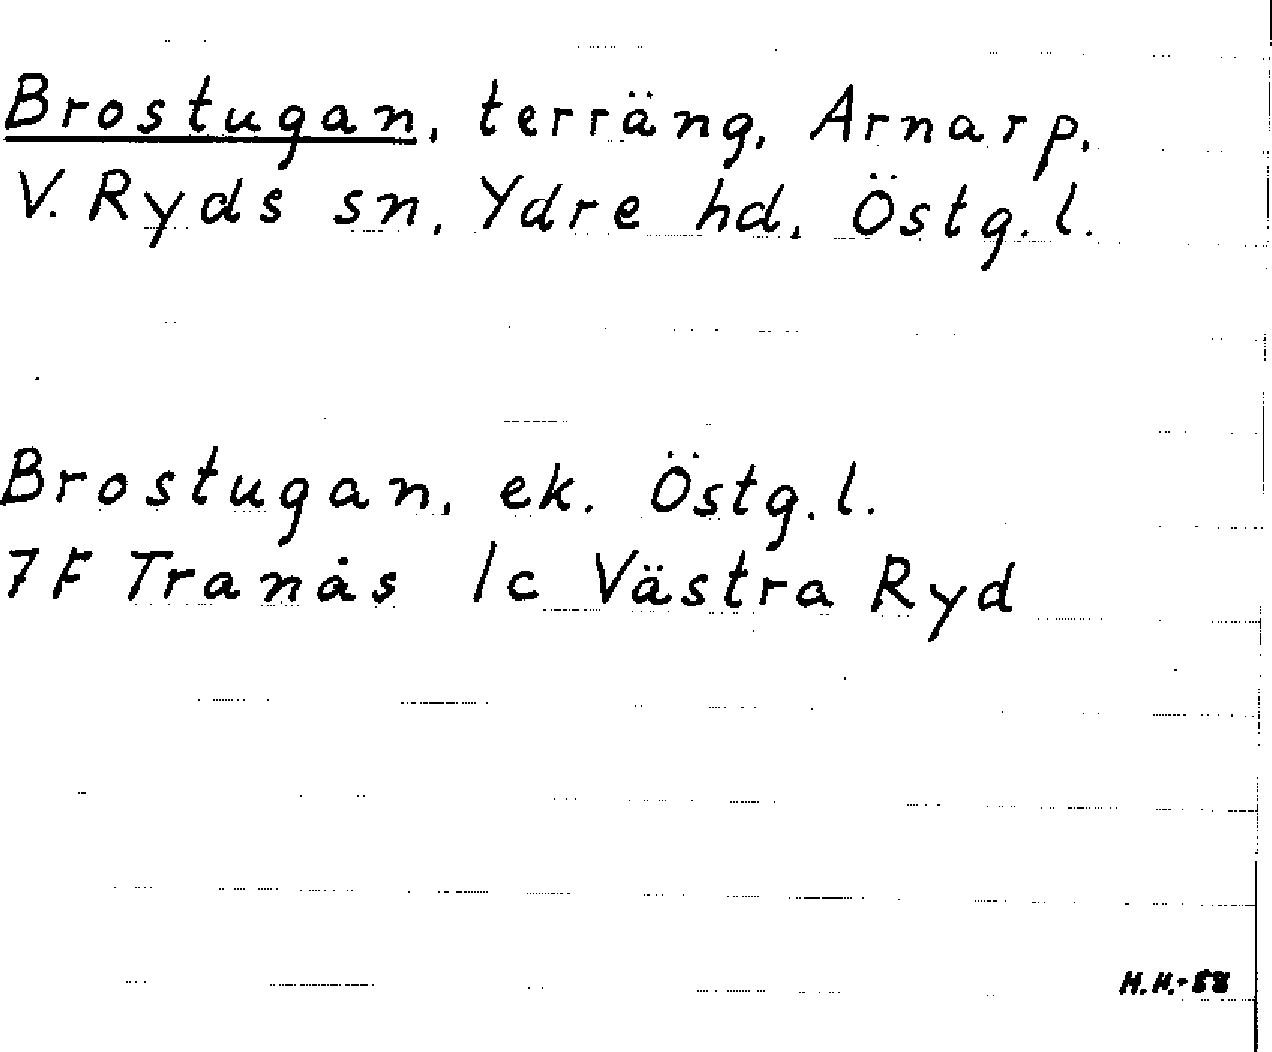 Brostugan, terräng, Arnarp,
V. Ryds sn, Ydre hd, Östg. l.
Brostugan, ek. Östg. l.
7F Tranås 1c Västra Ryd